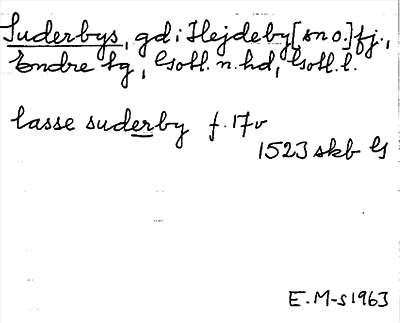 Suderbys, gd i Hejdeby [sn o.] fj.,
Endre tg, Gotl. n. hd, Gotl. l.
lasse suderby f. 17v
1523 skb G
E. M-s 1963